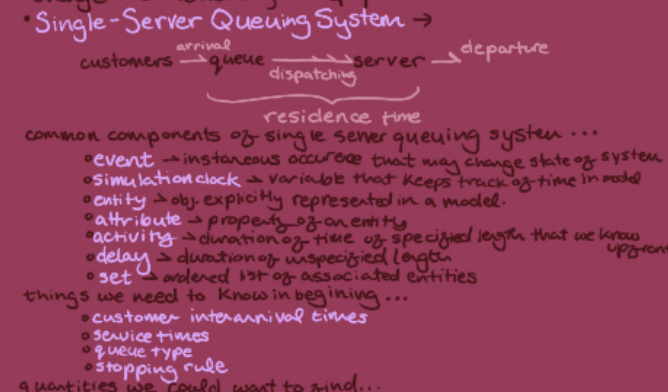 • Single-Server Queuing System →
arrival
customers → queue → server → departure
dispatching
residence time
common components of single server queuing system ...
• event → instaneous occurece that may change state of system
• simulation clock → variable that keeps track of time in model
• entity → obj. explicitly represented in a model.
• attribute → property of an entity
• activity → duration of time of specified length that we know upfront
• delay → duration of unspecified length
• set → ordered list of associated entities
things we need to know in begining ...
• customer interarrival times
• service times
• queue type
• stopping rule
quantities we could want to find...